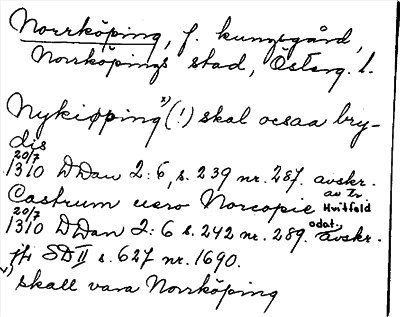 Norrköping, f. kungsgård,
Norrköpings stad, Österg. l.
Nykiøping 1) (!) skal ocsaa bry-
dis
20/7
1310 DDan 2:6, s. 239 nr. 287. avskr.
av Hvitfeld
Castrum uero Norcopie
20/7
1310 DDan 2:6 s. 242 nr. 289. odat. avskr.
jfr SD II s. 627 nr. 1690.
1) skall vara Norrköping